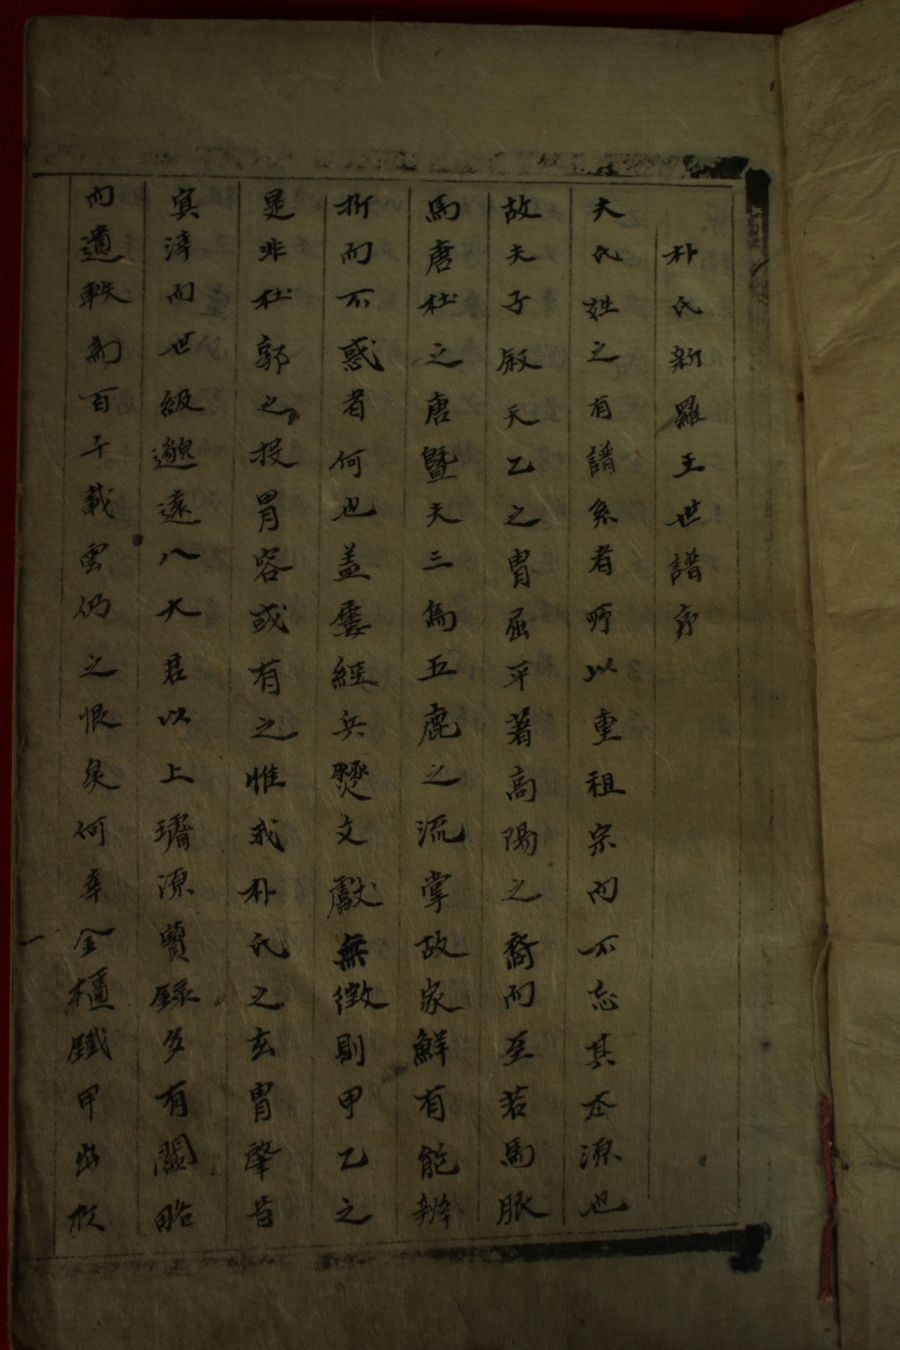 朴氏新羅王世譜序
夫氏姓之有譜系者所以重祖宗而不忘其本源也
故夫子叙天乙之胄屈平著高陽之裔而至若馬服
馬唐杜之唐暨夫三烏五鹿之流掌故家鮮有能辨
析而不惑者何也盖屢經兵燹文獻無徵則甲乙之
是非杜郭之投胃容或有之惟我朴氏之玄胄肇昔
寞滓而世級邈遠八大君以上璿源寶錄多有闕略
而遺軼爲百千載雲仍之恨矣何幸金櫃鐵甲出於